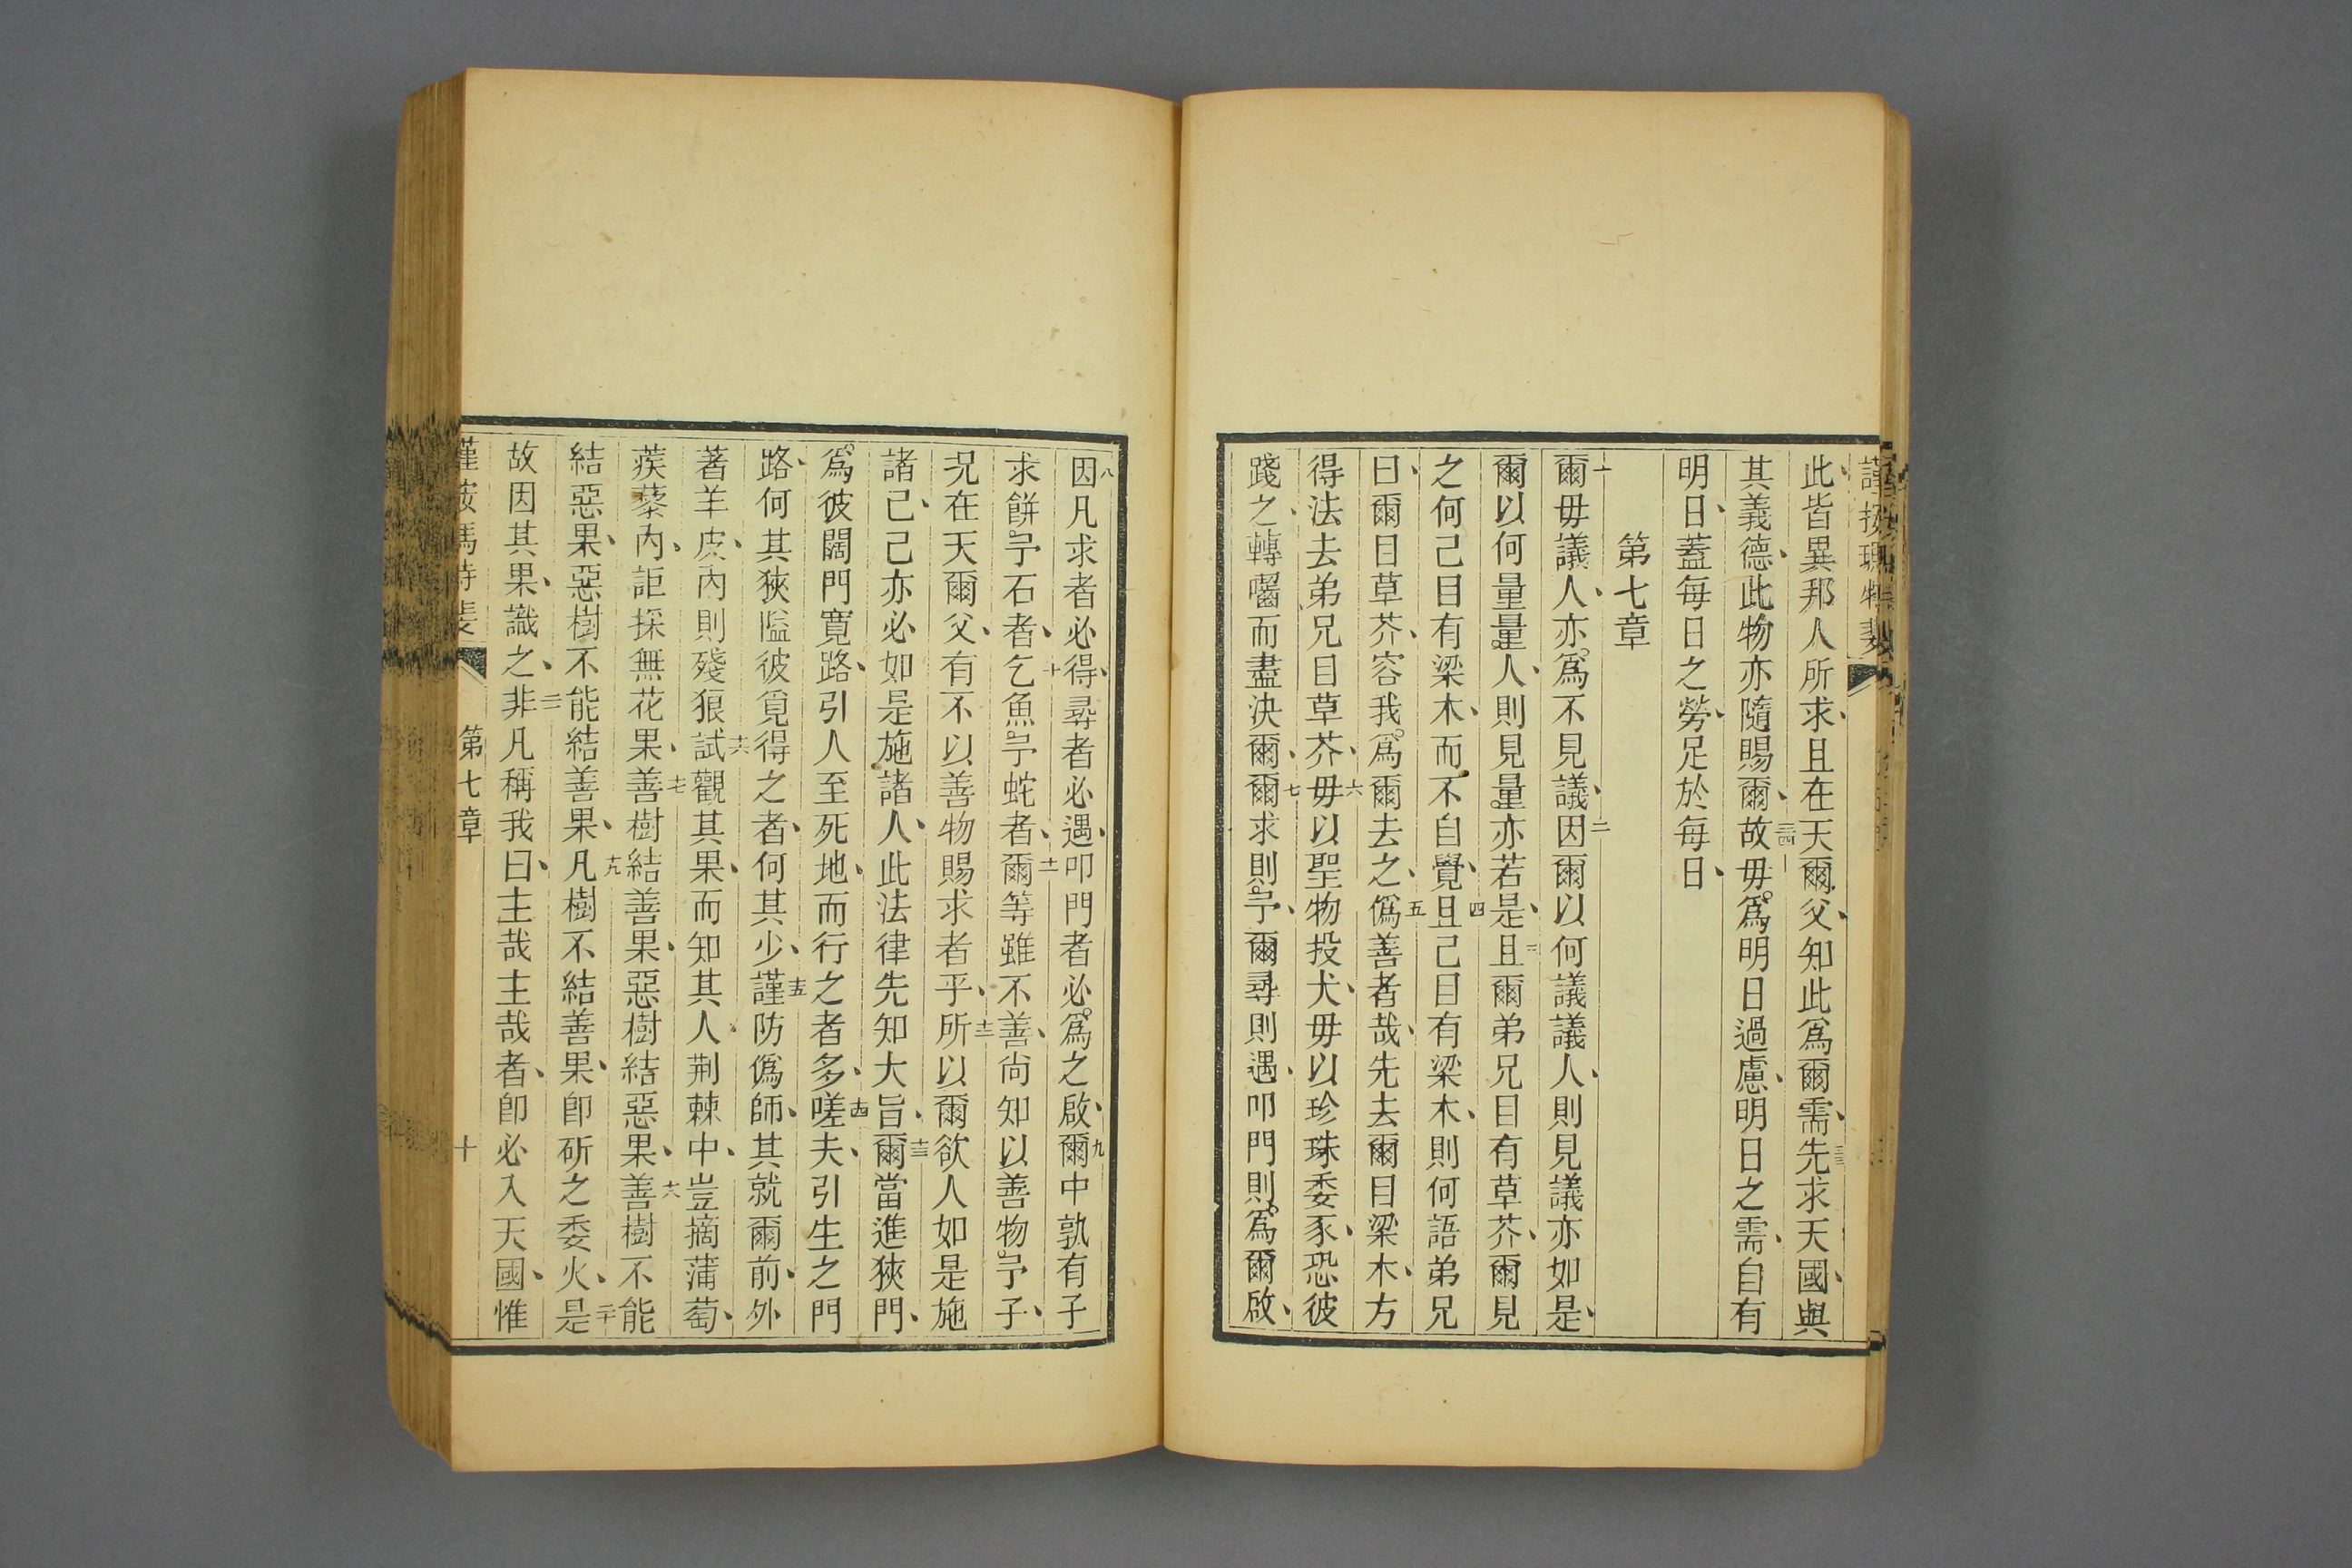 此皆異邦人所求、且在天爾父、知此爲爾需、三三先求天國、與
其義德、此物亦隨賜爾、三四故毋爲明日過慮、明日之需、自有
明日、蓋每日之勞、足於每日、
第七章
一爾毋議人、亦爲不見議、二因爾以何議議人、則見議亦如是、
爾以何量量人、則見量亦若是、三且爾弟兄目有草芥、爾見
之何己目有梁木、而不自覺、四且己目有梁木、則何語弟兄
曰、爾目草芥、容我爲爾去之、五僞善者哉、先去爾目梁木、方
得法去弟兄目草芥、六毋以聖物投犬、毋以珍珠委豕、恐彼
踐之、轉嚙而盡決爾、七爾求則予、爾尋則遇、叩門則爲爾啟、
八因凡求者必得、尋者必遇、叩門者必爲之啟、九爾中孰有子
求餅、予石者、十乞魚、予蛇者、十一爾等雖不善、尚知以善物予子、
况在天爾父、有不以善物賜求者乎、十二所以爾欲人如是施
諸己、己亦必如是施諸人、此法律先知大旨、十三爾當進狹門、
爲彼闊門寬路、引人至死地、而行之者多、十四嗟夫、引生之門
路、何其狹隘、彼覓得之者、何其少、十五謹防僞師、其就爾前、外
著羊皮、內則殘狼、十六試觀其果、而知其人、荆棘中、豈摘蒲萄、
蒺藜內、詎採無花果、十七善樹結善果、惡樹結惡果、十八善樹不能
結惡果、惡樹不能結善果、十九凡樹不結善果、卽斫之委火、二十是
故因其果、識之、二一非凡稱我曰、主哉主哉者、卽必入天國、惟
第七章 十